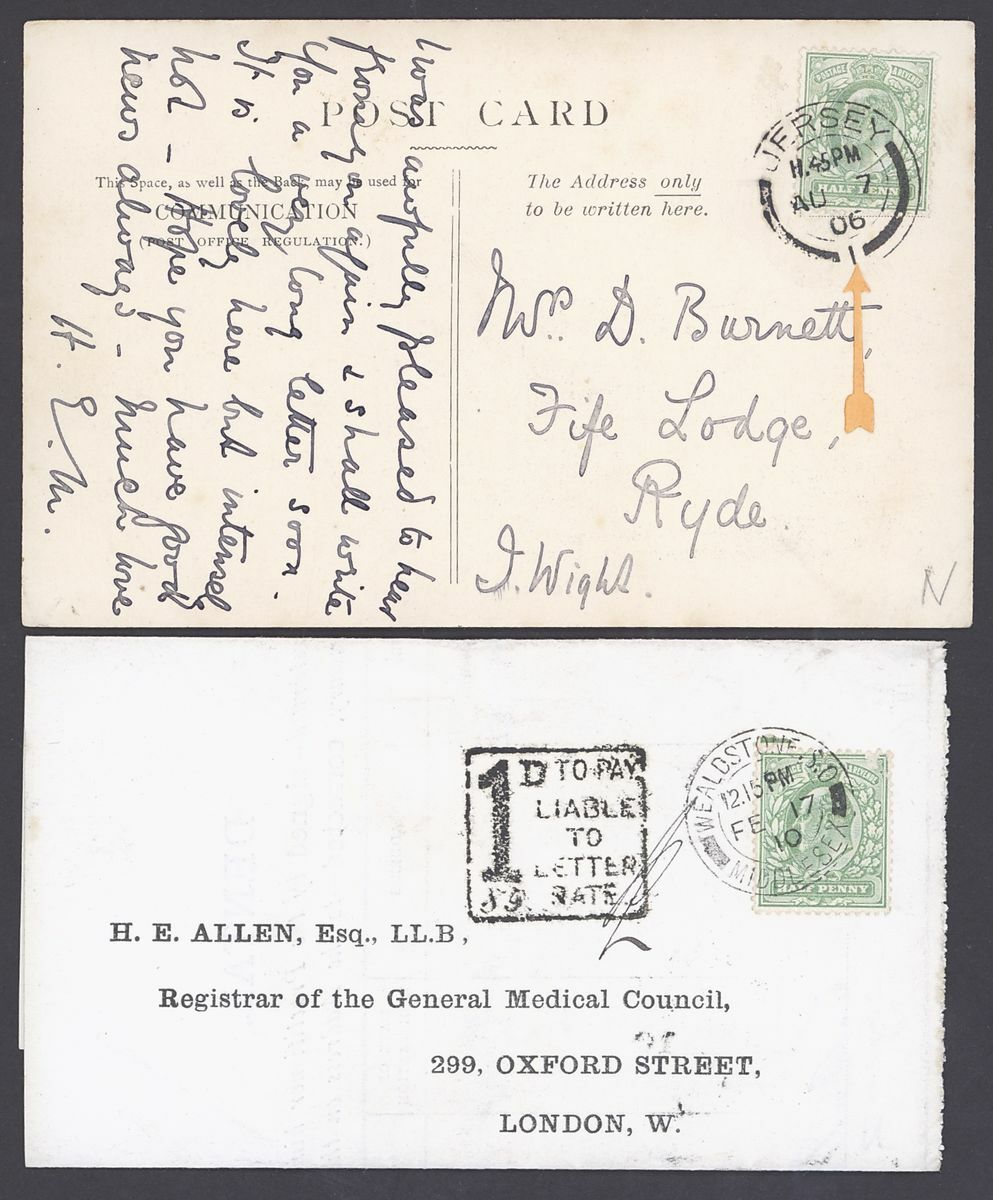 POST CARD
This Space, as well as the Back, may be used for
COMMUNICATION
(POST OFFICE REGULATION.)
The Address only
to be written here.
I was awfully pleased to hear
from you again & shall write
you a very long letter soon.
It is lovely here but intensely
hot - Hope you have good
news always - Much love
H. E. M.
POSTAGE
HALF PENNY
JERSEY
11.45PM
AU 7
06
1
Mrs. D. Burnett,
Fife Lodge,
Ryde.
I. Wight.
N
1D TO PAY
LIABLE
TO
LETTER
RATE
S9
WEALDSTONE S.O
12.15 PM
FE 17
10
MIDDLESEX
HALF PENNY
H. E. ALLEN, Esq., LL.B,
Registrar of the General Medical Council,
299, OXFORD STREET,
LONDON, W.